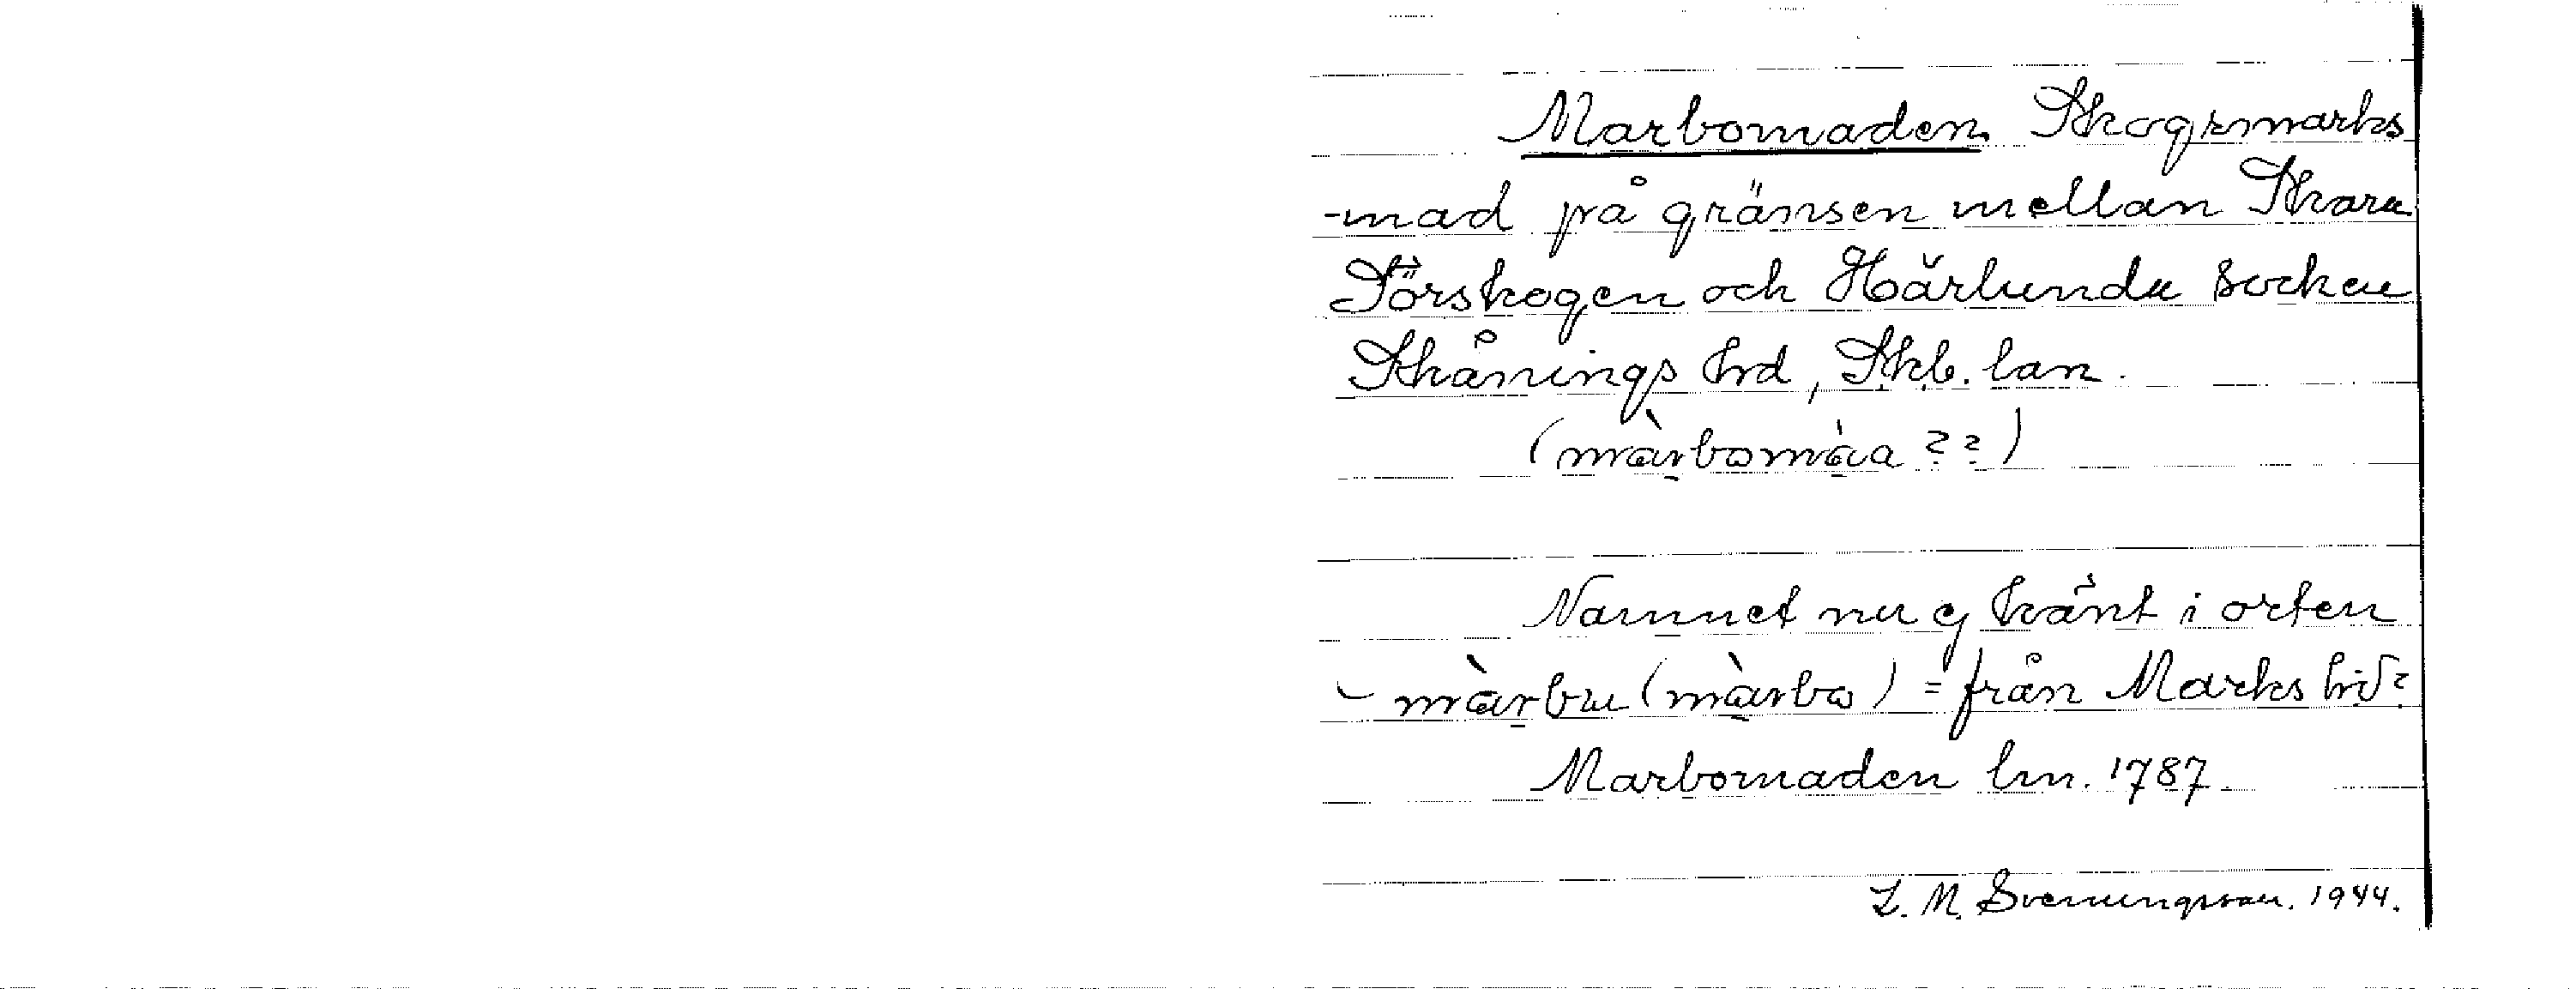 Marbomaden. Skogsmarks
-mad på gränsen mellan Skara
Törskogen och Härlunda socken
Skånings hd, Skb. län.
(màrbomàa ??)
Namnet nu ej känt i orten
- màrbu (màrbo) = från Marks hd?
Marbomaden lm. 1787.
L. M. Svenungsson. 1944.